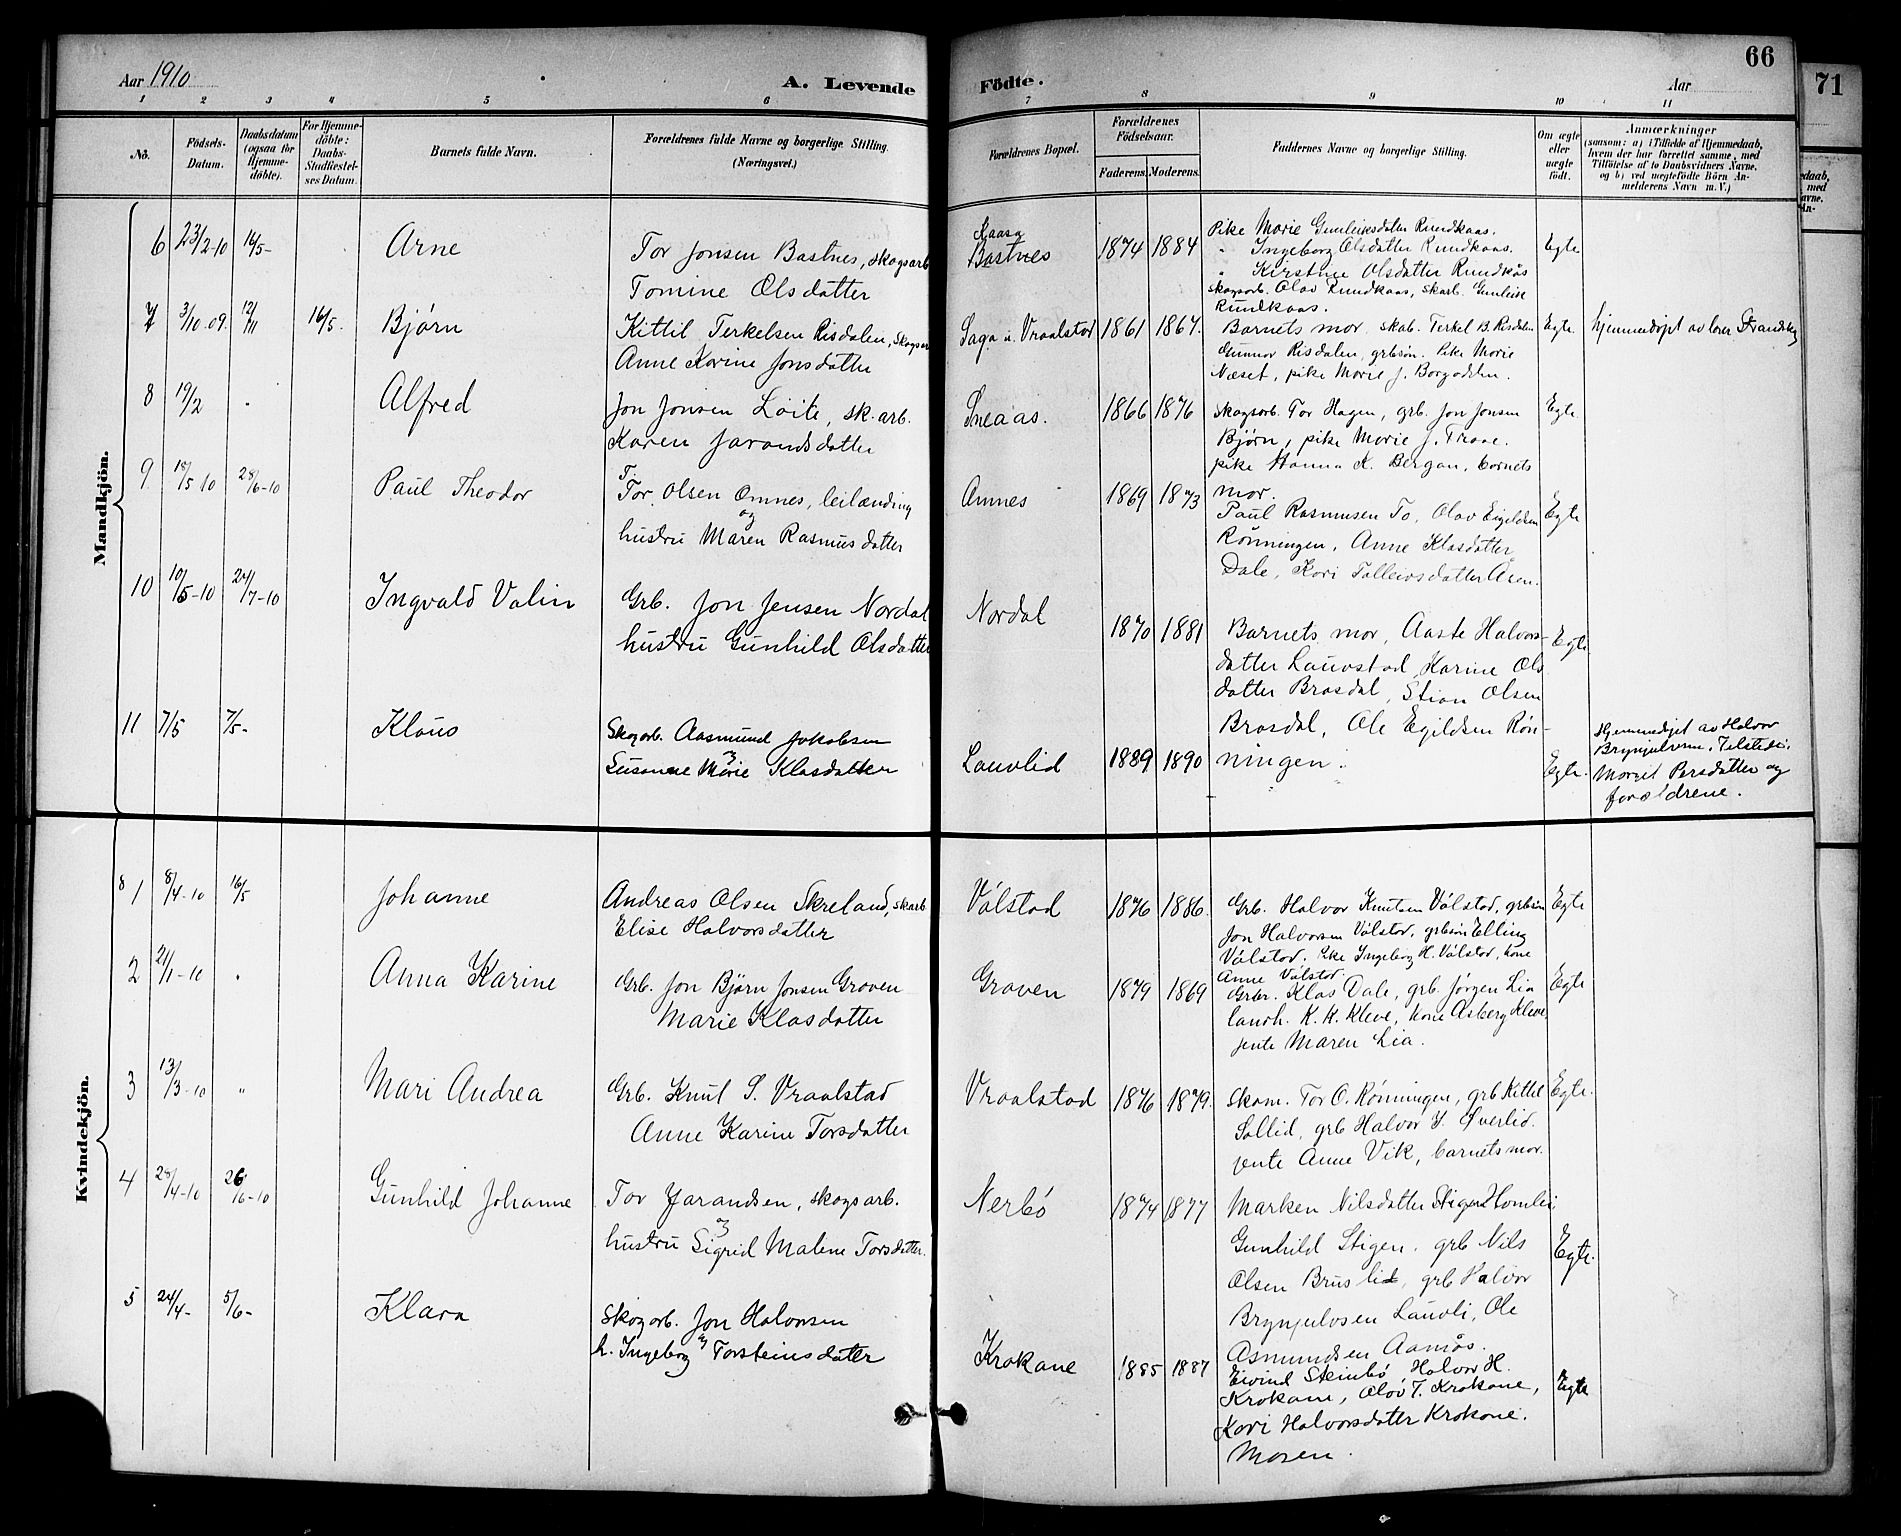 Aar 1910
A. Levende
Födte.
Aar
66
71
1 2 3 4 5 6 7 8 9 10 11
No.
Födsels-Datum.
Daabsdatum (ogsaa for Hjemme-döbte).
For Hjemme-döbte: Daabs-Stadfæstel-ses Datum.
Barnets fulde Navn.
Forældrenes fulde Navne og borgerlige Stilling. (Næringsvei.)
Forældrenes Bopæl.
Forældrenes Födselsaar.
Faderens. Moderens.
Faddernes Navne og borgerlige Stilling.
Om ægte eller uægte födt.
Anmærkninger
(saasom: a) i Tilfælde af Hjemmedaab,
hvem der har forrettet samme, med
Tilföielse af to Daabsvidners Navne.
og b) ved uægtefödte Börn An-
melderens Navn m. V.)
Mandkjön.
6 23/2-10 16/5- Arne
Tor Jonsen Bastnes, skogsarb
Tomine Olsdatter
Kaasa
Bastnes 1874 1884
Pike Marie Gunleiksdatter Rundkaas.
" Ingeborg Olsdatter Rundkaas.
" Kirstine Olsdatter Rundkås
skogsarb. Olav Rundkaas, skarb. Gunleik
Rundkaas.
Egte
7 3/10.09. 12/11 16/5. Bjørn
Kittil Terkelsen Risdalen, skogsar
Anne Karine Jonsdatter
Saga u. Vraalstad 1861 1867.
Barnets mor, skab. Terkel B. Risdalen
Gunnar Risdalen, grbsøn. Pike Marie
Næset, pike Marie J. Borgodden.
Egte.
hjemmedøpt av lærer Strandskog
8 19/2 " Alfred
Jon Jonsen Løite, sk.arb.
Karen Jarandsdatter
Sneaas. 1866 1876
skogsarb. Tor Hagen, grb. Jon Jonsen
Bjørn, pike Marie J. Traae.
pike Hanna K. Bergan, barnets
mor.
Egte
9 18/5 10 28/6-10 Paul Theodor
T.
Tor Olsen Omnes, leilænding
og
hustru Maren Rasmusdatter
Omnes 1869 1873
Paul Rasmusen To, Olav Eigildsen
Rønningen, Anne Klasdatter
Dale, Kari Tolleivsdatter Aren.
Egte
10 10/5-10 24/7-10 Ingvald Valin
Grb. Jon Jensen Nordal
hustru Gunhild Olsdatter
Nordal 1870 1881
Barnets mor, Aaste Halvors-
datter Lauvstad, Karine Ols
datter Brasdal, Stian Olsen
Brasdal, Ole Egildsen Røn-
ningen.
Egte
11 7/5 7/5- Klaus
Skogarb. Aasmund Jakobsen
og
Susanne Marie Klasdatter
Lauvlid 1889 1890
Egte.
Hjemmedøpt av Halvor
Brynjulvsen,
Margit Persdatter og
forældrene.
Kvindekjön.
1 8/4-10 16/5 Johanne
Andreas Olsen Skreland, skarb
Elise Halvorsdatter
Válstad 1876 1886.
Grb. Halvor Knutsen Válstad, grbsøn
Jon Halvorsen Válstad, grbsøn Elling
Válstad. Pike Ingeborg H. Válstad, kone
Anne Válstad.
Egte
2 21/1-10 " Anna Karine
Grb. Jon Bjørn Jonsen Graven
Marie Klasdatter
Graven 1879 1869
Grbr. Klas Dale, grb. Jørgen Lia
landh. K. K. Kleve, kone Asberg Kleve,
jente Maren Lia.
Egte
3 13/3-10 " Mari Andrea
Grb. Knut S. Vraalstad
Anne Karine Torsdatter
Vraalstad 1876 1879.
Skom. Tor O. Rønningen, grb Kittel
Sollid, grb Halvor Y. Øverlid.
jente Anne Vik, barnets mor.
Egte.
4 28/4-10 26/6-10 Gunhild Johanne
Tor Jarandsen, skogsarb.
og
hustru Sigrid Malene Torsdatter.
Nerbö 1874 1877
Marken Nilsdatter Stigen Homlei,
Gunhild Stigen. grb Nils
Olsen Bruslid, grb Halvor
Brynjulvsen Lauvli, Ole
Asmundsen Aamås.
Egte.
5 24/4- 5/6- Klara
Skogarb. Jon Halvorsen
og
h. Ingeborg Torsteinsdatter
Krokane 1885 1887
Eivind Steinbø, Halvor H.
Krokane, Olav T. Krokane,
Kari Halvorsdatter Krokane.
Moren.
Egte